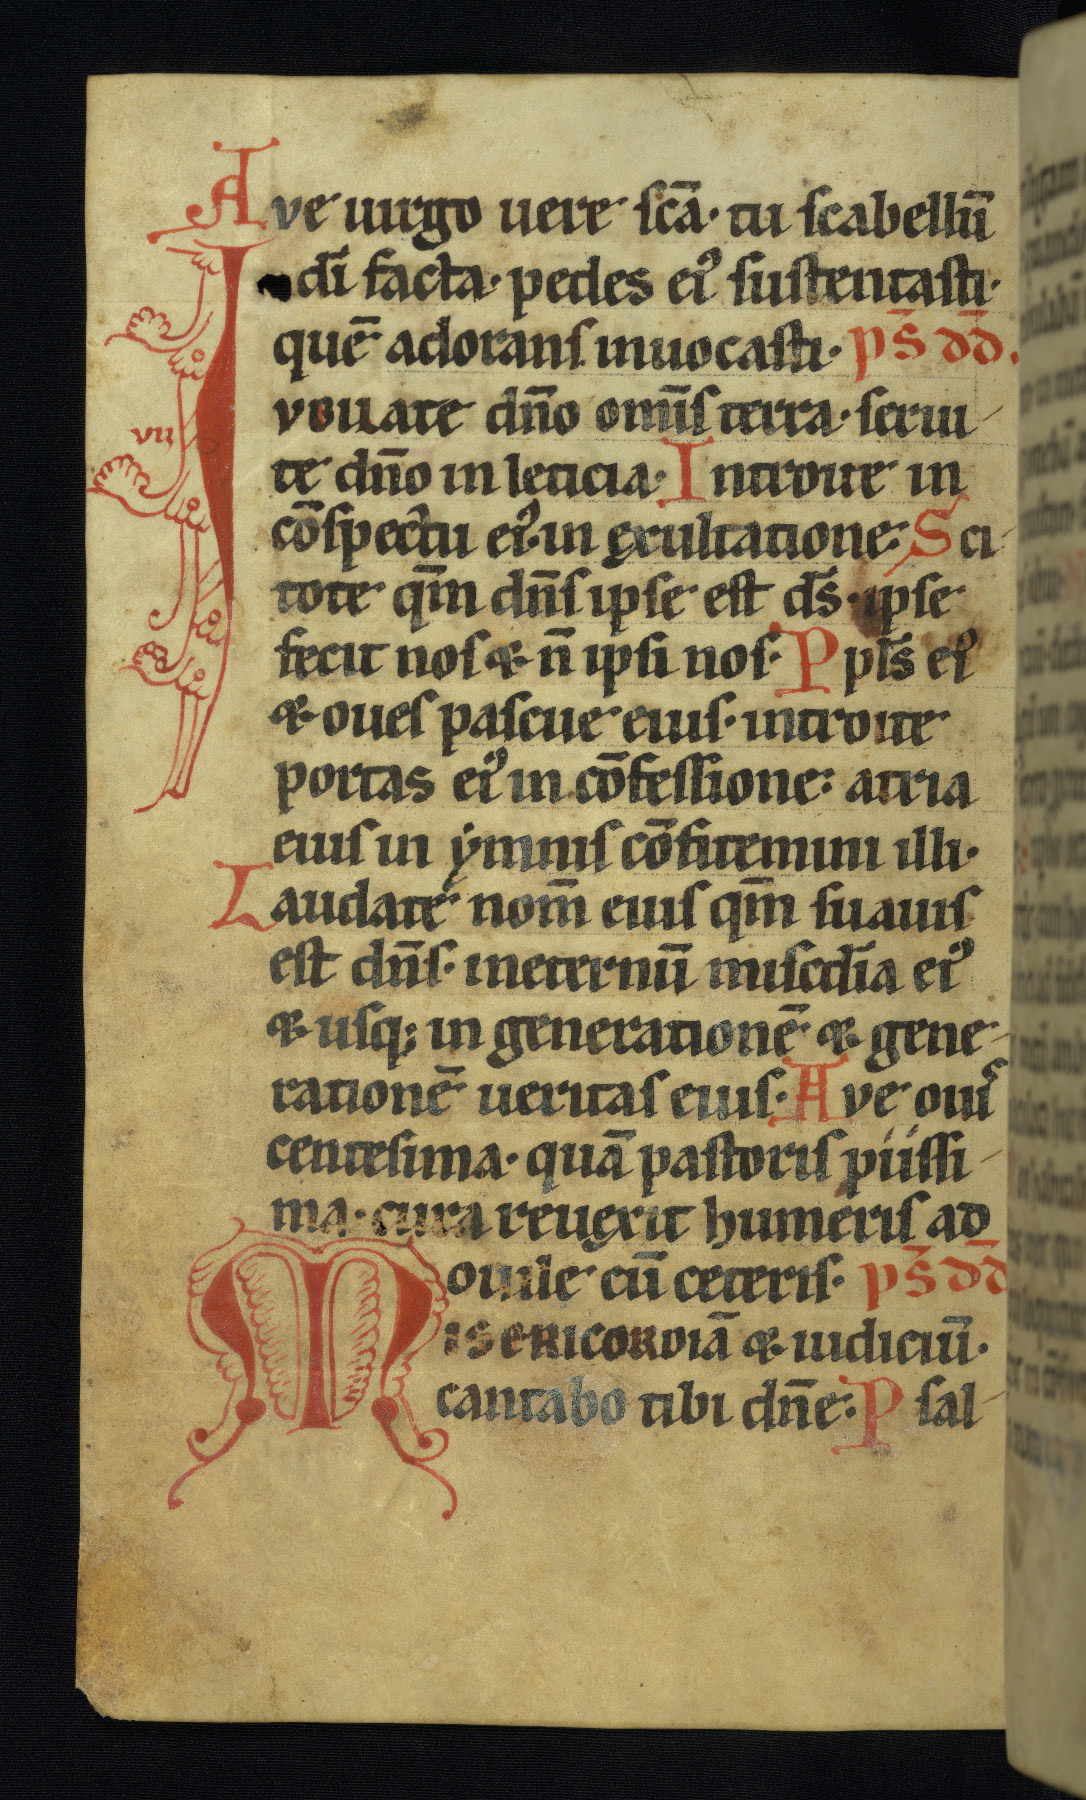 Ave uirgo uere scā· tu scabellū
dī facta· pedes eiꝰ sustentasti·
quē adorans inuocasti· ps̄ dd̄.
Iubilate dn̄o omīs terra· serui-
te dn̄o in leticia· Introite in
cōspectu eiꝰ in exultatione· Sci-
tote qm̄ dn̄s ipse est ds̄· ipse
fecit nos & n̄ ipsi nos· Ppls̄ eiꝰ
& oues pascue eius· introite
portas eiꝰ in cōfessione: atria
eius in ẏmnis cōfitemini illi·
Laudate nom̄ eius qm̄ suauis
est dn̄s· ineternū misc̄dia eiꝰ
& usq; in generationē & gene-
rationē ueritas eius· Ave ouis
centesima· quā pastoris piissi-
ma· cura reuexit humeris ad
ouile cū ceteris· ps̄ dd̄
Misericordiā & iudiciū·
cantabo tibi dn̄e: Psal-
vii